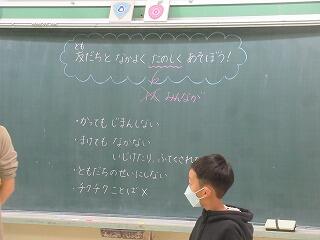 とも
友だちと なかよく たのしく あそぼう!
みんなが
・かっても じまんしない
・まけても なかない
いじけたり、ふてくされ
・ともだちのせいにしない
・チクチクことば ×